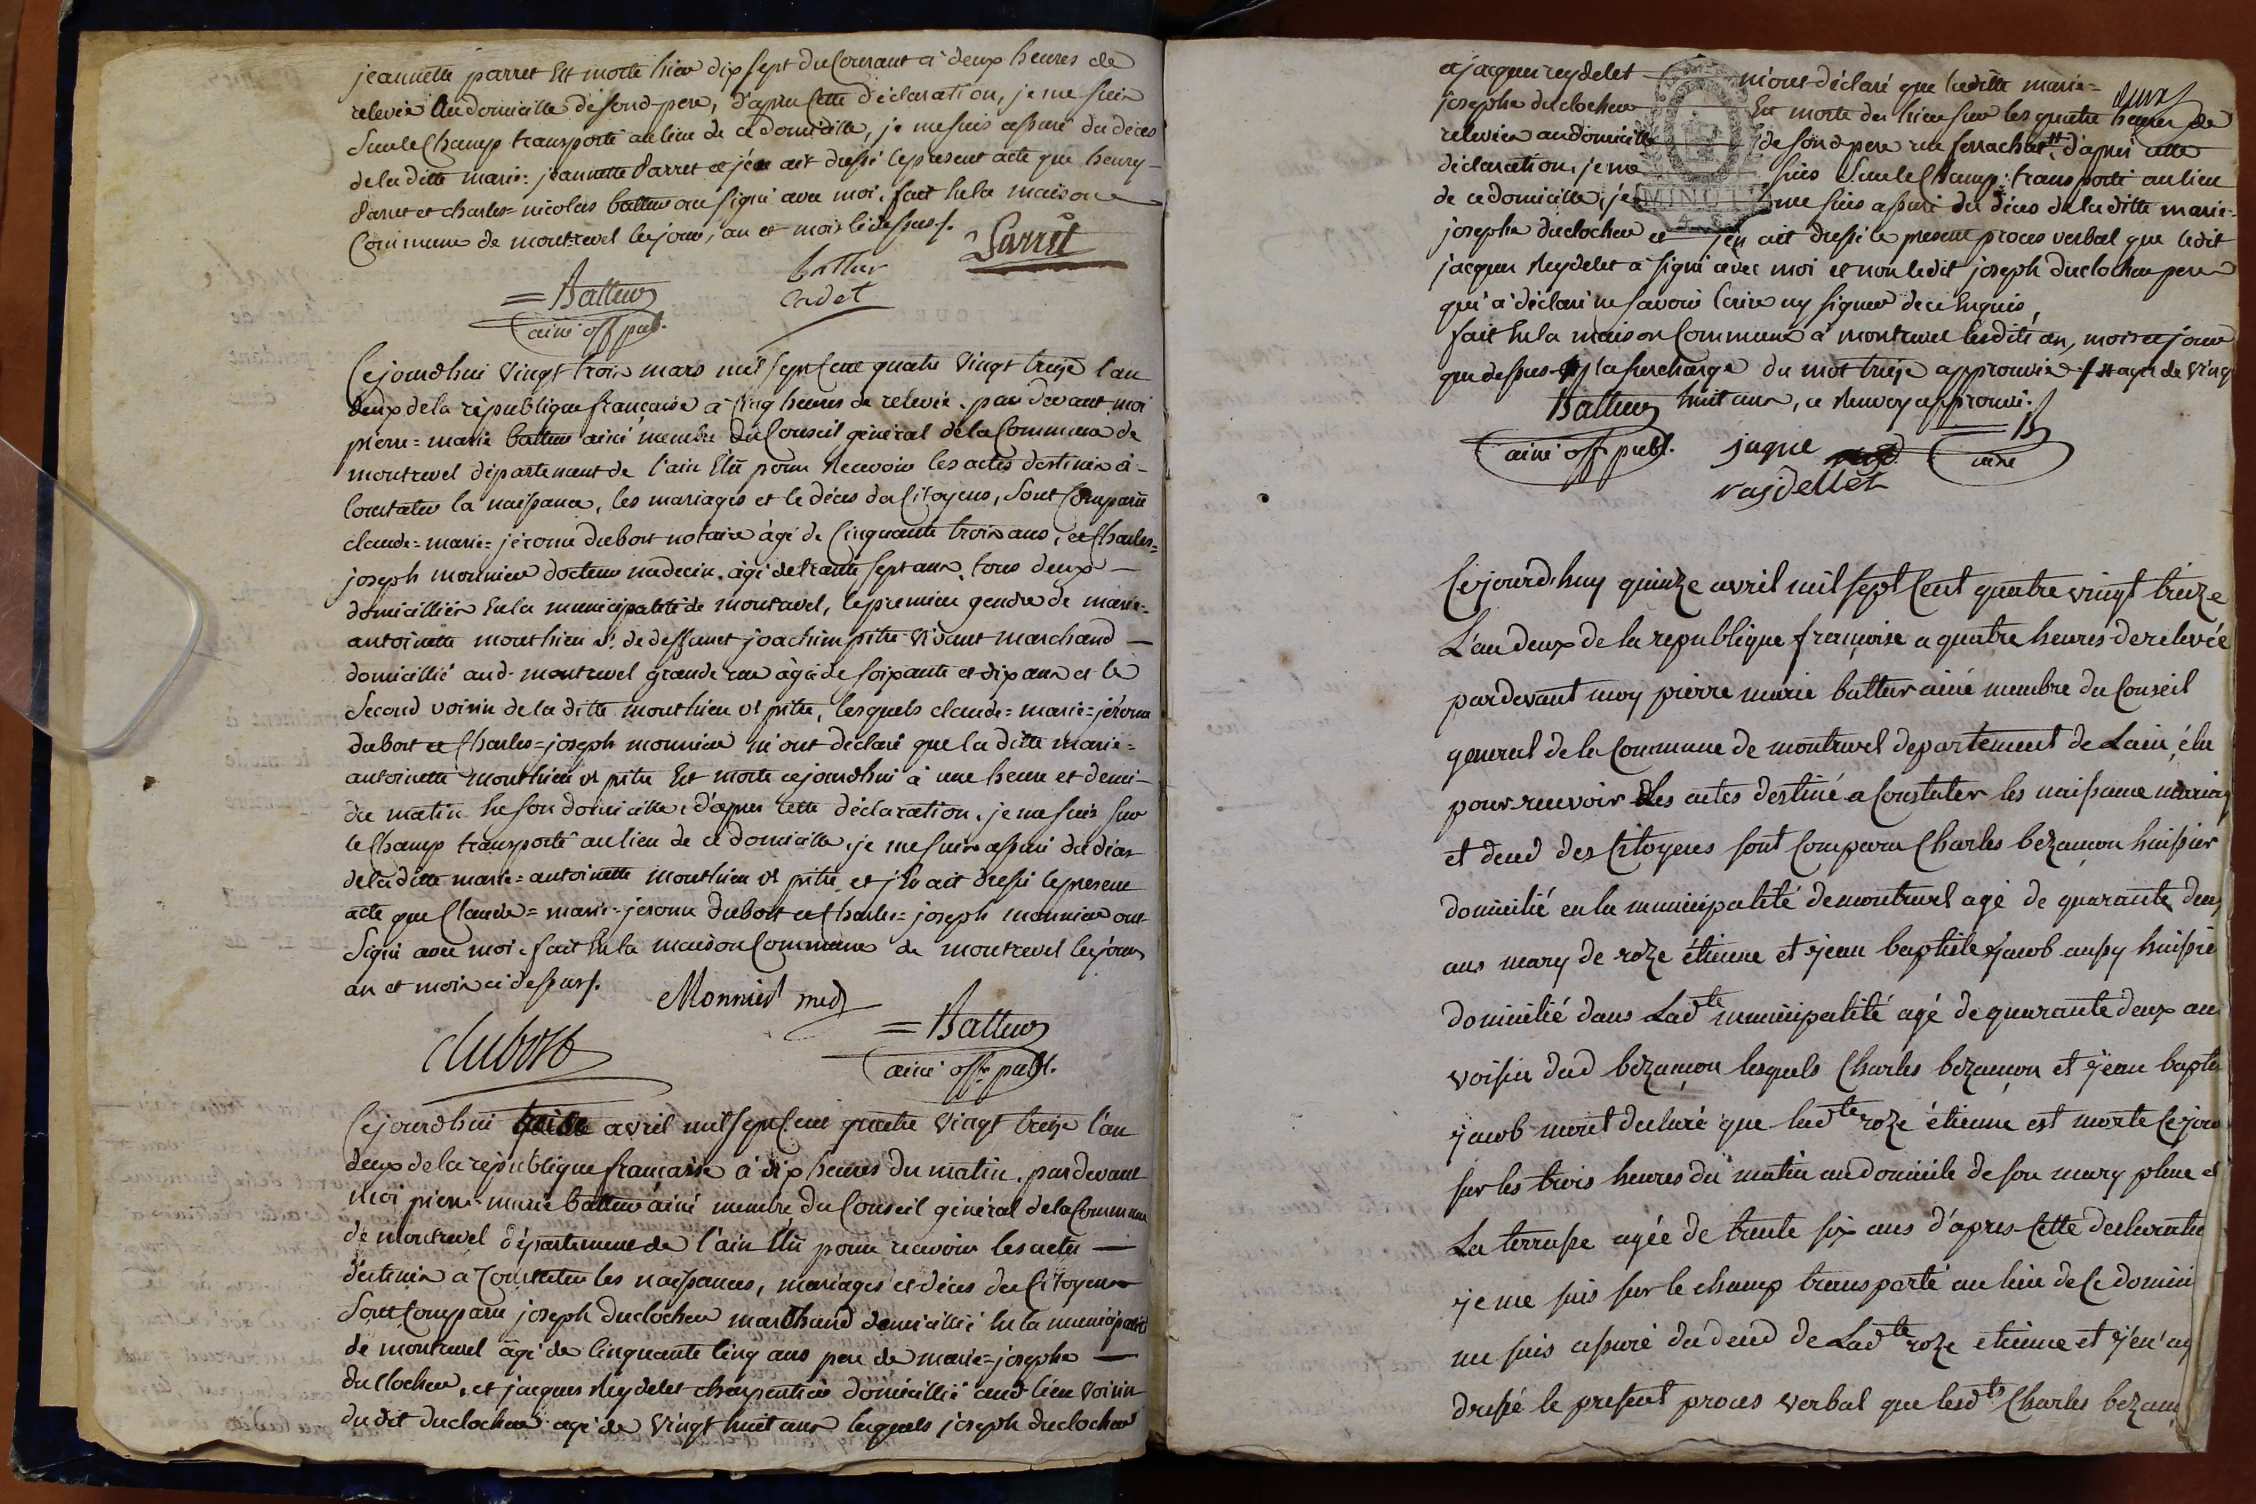 jeannette parret Est morte hier dix sept du Courant à deux heures de
relevée Au domicille de son d. pere, d'après Cette déclaration, je me suis
Sur le Champ transporté au lieu de ce domicille, je me suis assuré du décès
de la ditte marie= jeannette Parret et j'en ait dressé le present acte que henry
Parret et charles=nicolas battur ont signé avec moi. fait En la maison
Commune de montrevel les jour, an et mois Ci dessus.
Parret
battur
Cadet
=Battur
ainé off. publ.
Cejourdhui vingt trois mars mil sept Cent quatre vingt treize l'an
deux de la république française à Cinq heures de relevée. par devant moi
pierre=marie battur ainé membre du Conseil général de la Commune de
montrevel département de l'ain Élû pour Recevoir les actes destinés à
Constater la naissance, les mariages et le décès des Citoyens, Sont Comparu
claude=marie=jérome dubost notaire âgé de Cinquante trois ans, et Charles=
joseph monnier docteur medecin. âgé de trante sept ans. tous deux
domicilliés En la municipalité de montrevel, le premier gendre de marie=
antoinette monthieu vᵉ. de deffunt joachim pitre vivant marchand
domicillié aud. montrevel grande rue âgée de soixante et dix ans et le
Second voisin de la ditte monthieu vᵉ pitre, lesquels claude=marie=jérome
dubost et Charles=joseph monnier m'ont déclaré que la ditte marie=
antoinette monthieu vᵉ pitre Est morte cejourdhui à une heure et demi
du matin En son domicille. d'après cette déclaration. je me suis sur
le Champ transporté au lieu de ce domicille, je me suis assuré du décès
de la ditte marie=antoinette monthieu vᵉ pitre et j'En ait dressé le present
acte que Claude=marie=jerome dubost et Charles=joseph monnier ont
Signé avec moi. fait En la maison Commune de montrevel les jour
an et mois ci dessus.
Monnier med.
dubost
=Battur
ainé off. publ.
Cejourdhui treize avril mil sept Cent quatre vingt treize l'an
deux de la république française à dix heures du matin. par devant
moi pierre=marie battur ainé membre du Conseil général de la Commune
de montrevel département de l'ain Élû pour recevoir les actes
destinés a Constater les naissances, mariages et décès des Citoyens
Sont Comparu joseph duclocher marchand domicillié En la municipalité
de montrevel âgé de Cinquante Cinq ans pere de marie=josephe
duclocher, et jacques Reydelet charpentier domicillié aud. lieu voisin
du dit duclocher agé de vingt huit ans lesquels joseph duclocher
et jacques reydelet m'ont déclaré que laditte marie=
josephe duclocher Est morte des hier sur les quatre heures de
relevée au domicille de son d. pere rue d'après cette
déclaration, je me suis Sur le Champ transporté au lieu
de ce domicille, je me suis assuré du décès de la ditte marie=
MINUT
4. S.
josephe duclocher et j'en ait dressé le present procès verbal que ledit
jacques Reydelet a signé avec moi et non ledit joseph duclocher pere
qui a déclaré ne savoir Ecrire ny signer de ce Enquis,
fait En la maison Commune à montrevel lesdits an, mois et jour
que dessus la surcharge du mot treize approuvée agée de vingt
huit ans, ce Renvoy approuvé.
Battur
ainé off. publ.
jaque
raidellet
B
ainé
Cejourd'huy quinze avril mil sept Cent quatre vingt treize
L'an deux de la republique françoise a quatre heures de relevée
pardevant moy pierre marie battur ainé membre du Conseil
general de la Commune de montrevel departement de Lain, élu
pour recevoir Les actes destiné a Constater les naissance mariag
et deced des Citoyens sont Comparu Charles bezançon huissier
domicilié en la municipalité de montrevel agé de quarante deux
ans mary de roze étienne et jean baptiste jacob aussy huissier
domicilié dans Ladᵗᵉ municipalité agé de quarante deux ans
voisin dud bezançon lesquels Charles bezançon et jean baptiste
jacob mont declaré que ladᵗᵉ roze étienne est morte Cejour
sur les trois heures du matin au domicile de son mary place de
La terrasse agée de trente six ans d'apres Cette declaratio
je me suis sur le champ transporté au lieu de Ce domici
me suis assuré du deced de Ladᵗᵉ roze etienne et j'en ay
dressé le present proces verbal que lesdᵗˢ Charles bezan